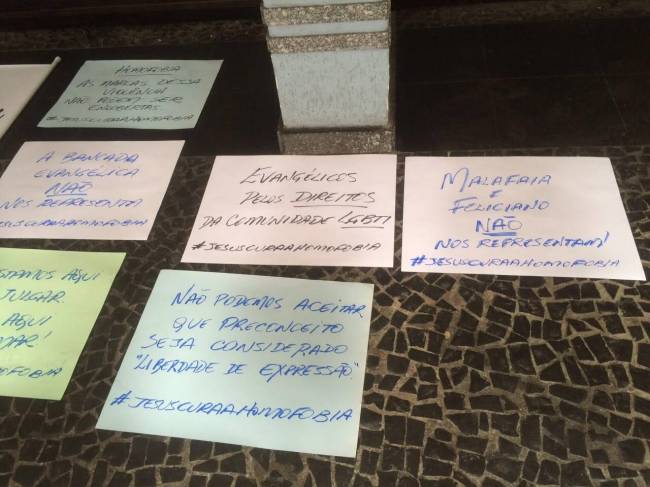 HOMOFOBIA
AS MARCAS DESSA
VIOLÊNCIA
NÃO PODEM SER
ENCOBERTAS.
#JESUSCURAAHOMOFOBIA
A BANCADA
EVANGÉLICA
NÃO
NOS REPRESENTA
JESUSCURAAHOMOFOBIA
EVANGÉLICOS
PELOS DIREITOS
DA COMUNIDADE LGBTI
#JESUSCURAAHOMOFOBIA
MALAFAIA
E
FELICIANO
NÃO
NOS REPRESENTAM!
#JESUSCURAAHOMOFOBIA
STAMOS AQUI
JULGAR.
AQUI
MOFOBIA
NÃO PODEMOS ACEITAR
QUE PRECONCEITO
SEJA CONSIDERADO
"LIBERDADE DE EXPRESSÃO".
#JESUSCURAAHOMOFOBIA